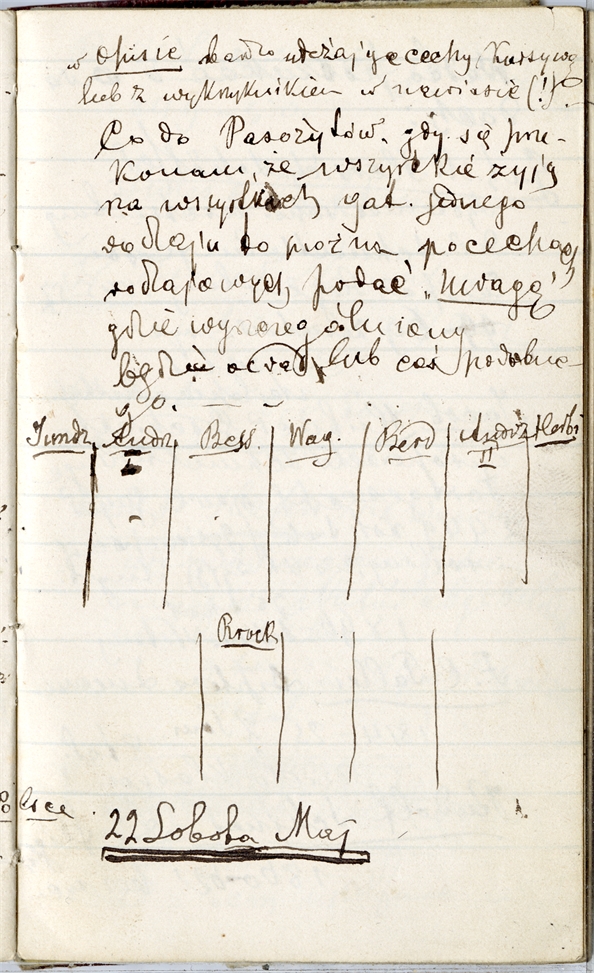 w opisie bardzo uderzające cechy, Kursywą
lub z wykrzyknikiem w nawiasie (!)
Co do Pasorzytów, gdy się prze-
konam, że wszystkie żyją
na wszystkich gat. jednego
rodzaju to można po cechach
rodzajowych podać „Uwagę”
gdzie wyszczególniony
będzie lub coś podobne-
go.
Andrz I Bess. Wag. Berd Andrz II
22 Sobota Maj